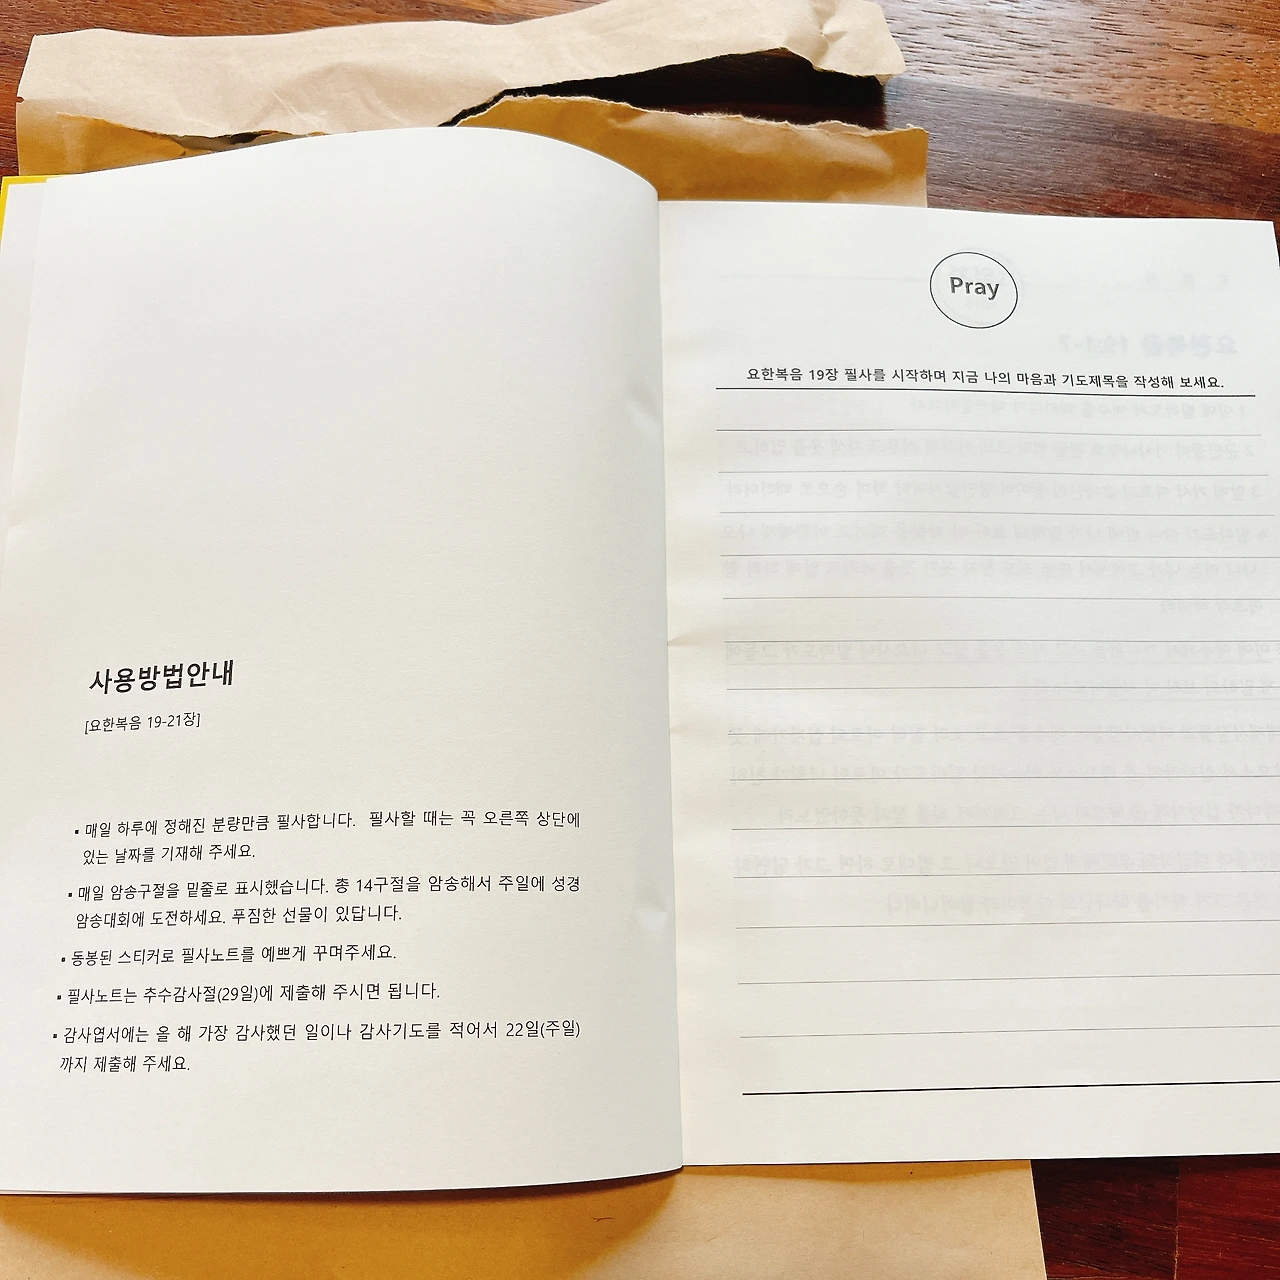 사용방법안내
[요한복음 19-21장]
▪ 매일 하루에 정해진 분량만큼 필사합니다. 필사할 때는 꼭 오른쪽 상단에
있는 날짜를 기재해 주세요.
▪ 매일 암송구절을 밑줄로 표시했습니다. 총 14구절을 암송해서 주일에 성경
암송대회에 도전하세요. 푸짐한 선물이 있답니다.
▪ 동봉된 스티커로 필사노트를 예쁘게 꾸며주세요.
▪ 필사노트는 추수감사절(29일)에 제출해 주시면 됩니다.
▪ 감사엽서에는 올 해 가장 감사했던 일이나 감사기도를 적어서 22일(주일)
까지 제출해 주세요.
Pray
요한복음 19장 필사를 시작하며 지금 나의 마음과 기도제목을 작성해 보세요.